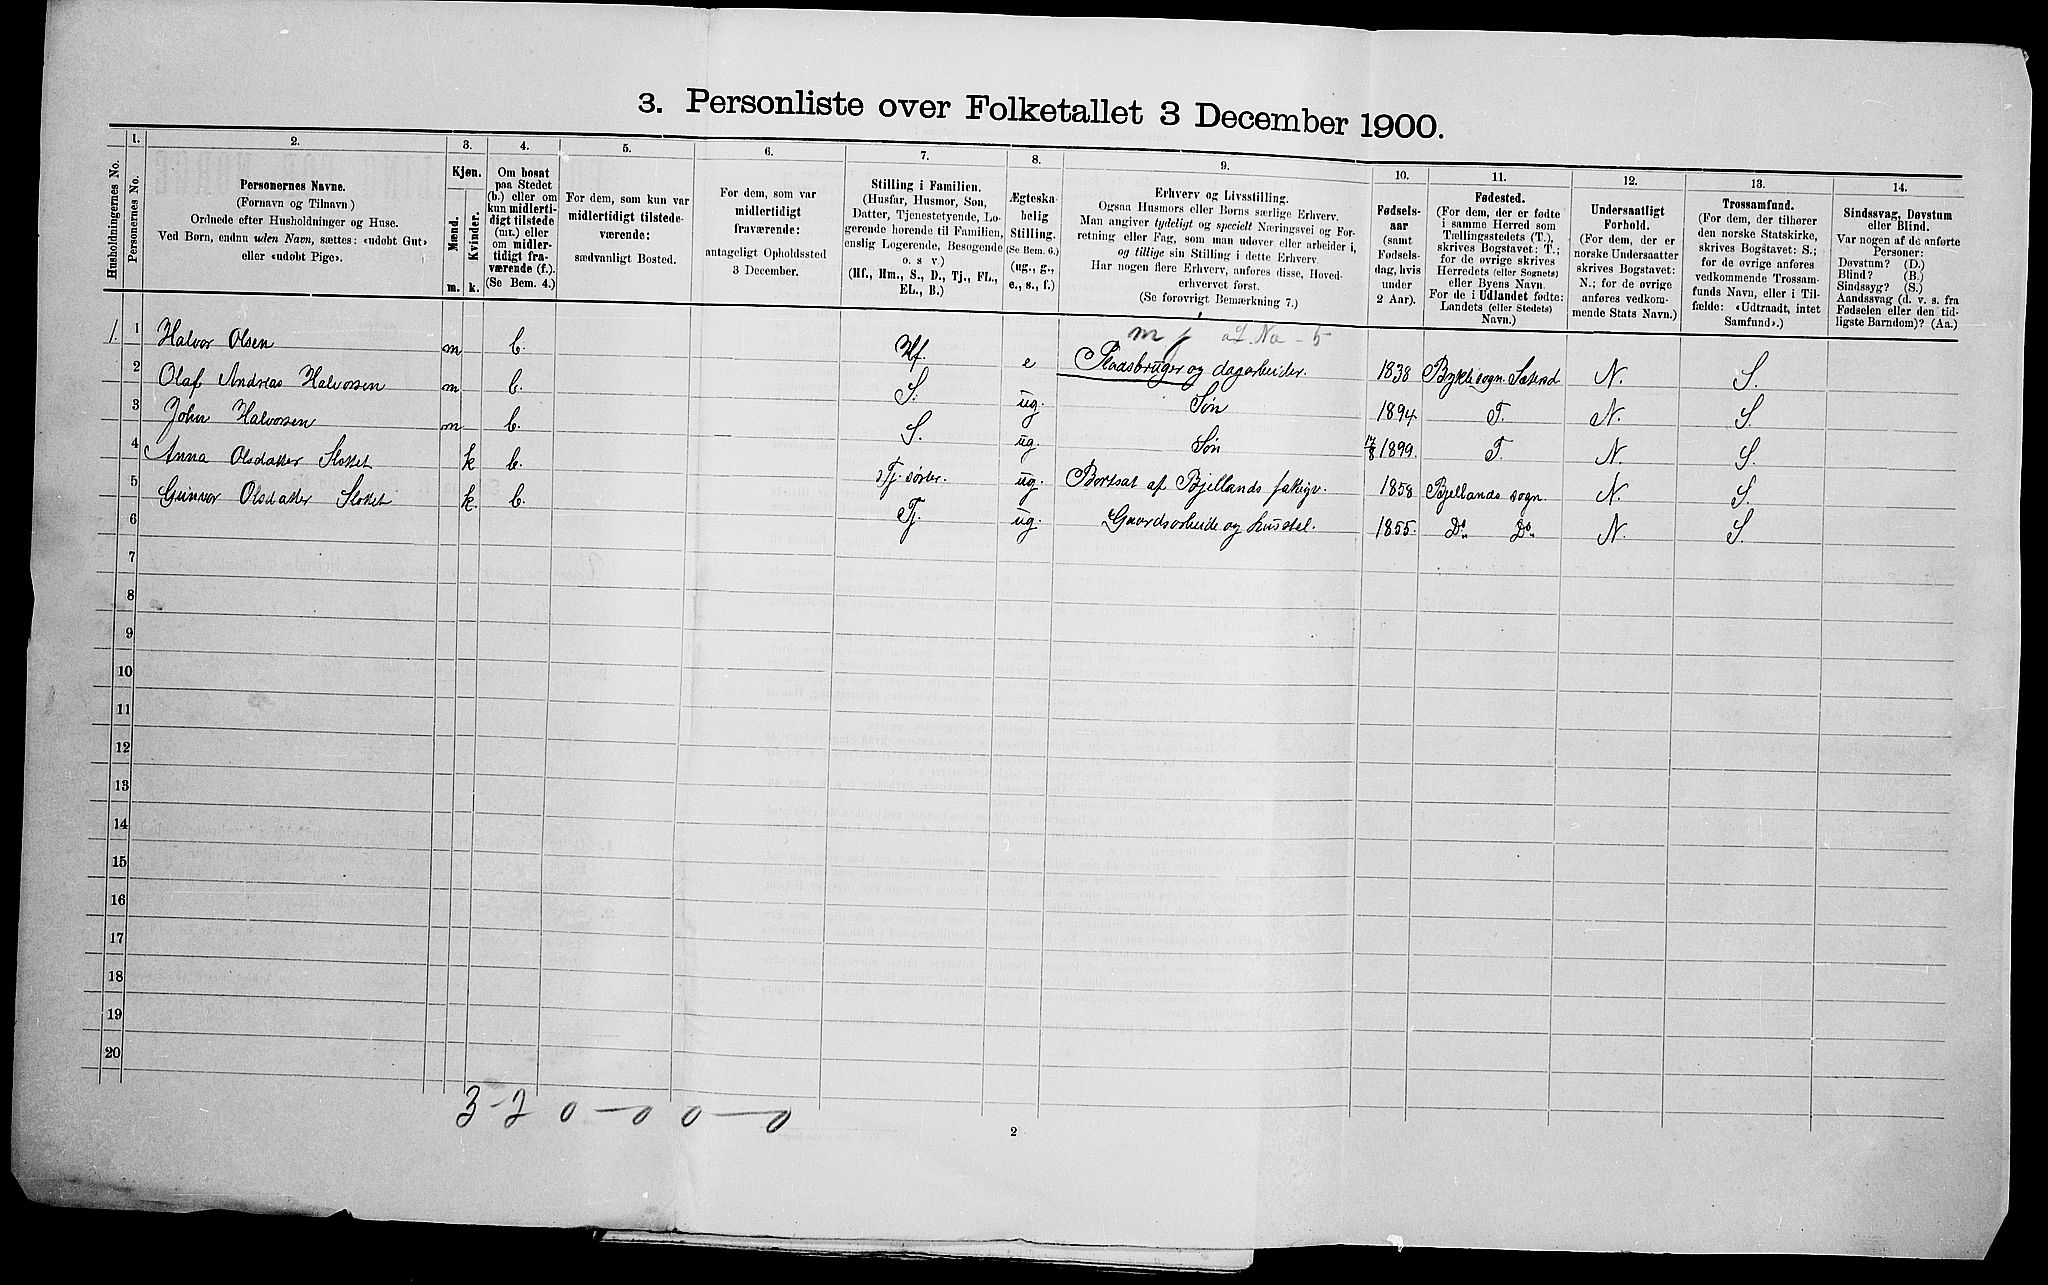 3. Personliste over Folketallet 3 December 1900.
Husholdningernes No.
1.
Personernes No.
2.
Personernes Navne.
(Fornavn og Tilnavn)
Ordnede efter Husholdninger og Huse.
Ved Børn, endnu uden Navn, sættes: «udøbt Gut»
eller «udøbt Pige».
3.
Kjøn.
Mænd.
Kvinder.
m.
k.
4.
Om bosat
paa Stedet
(b.) eller om
kun midlerti-
digt tilstede
(mt.) eller
om midler-
tidigt fra-
værende (f.).
(Se Bem. 4.)
5.
For dem, som kun var
midlertidigt tilstede-
værende:
sædvanligt Bosted.
6.
For dem, som var
midlertidigt
fraværende:
antageligt Opholdssted
3 December.
7.
Stilling i Familien.
(Husfar, Husmor, Søn,
Datter, Tjenestetyende, Lo-
gerende hørende til Familien,
enslig Logerende, Besøgende
o. s v.)
(Hf., Hm., S., D., Tj., FL.,
EL., B.)
8.
Ægteska-
belig
Stilling.
(Se Bem. 6.)
(ug., g.,
e., s., f.)
9.
Erhverv og Livsstilling.
Ogsaa Husmors eller Børns særlige Erhverv.
Man angiver tydeligt og specielt Næringsvei og For-
retning eller Fag, som man udøver eller arbeider i,
og tillige sin Stilling i dette Erhverv.
Har nogen flere Erhverv, anføres disse, Hoved-
erhvervet først.
(Se forøvrigt Bemærkning 7.)
10.
Fødsels-
aar
(samt
Fødsels-
dag, hvis
under
2 Aar).
11.
Fødested.
(For dem, der er fødte
i samme Herred som
Tællingsstedets (T.),
skrives Bogstavet: T.;
for de øvrige skrives
Herredets (eller Sognets)
eller Byens Navn.
For de i Udlandet fødte:
Landets (eller Stedets)
Navn.)
12.
Undersaatligt
Forhold.
(For dem, der er
norske Undersaatter
skrives Bogstavet:
N.; for de øvrige
anføres vedkom-
mende Stats Navn.)
13.
Trossamfund.
(For dem, der tilhører
den norske Statskirke,
skrives Bogstavet: S.;
for de øvrige anføres
vedkommende Trossam-
funds Navn, eller i Til-
fælde: «Udtraadt, intet
Samfund».)
14.
Sindssvag, Døvstum
eller Blind.
Var nogen af de anførte
Personer:
Døvstum? (D.)
Blind? (B.)
Sindssyg? (S.)
Aandssvag (d. v. s. fra
Fødselen eller den tid-
ligste Barndom)? (Aa.)
1. 1 Halvor Olsen m b. Hf. e Pladsbruger og dagarbeider. 1838 Bykle sogn Sæterd N. S.
2 Olaf Andreas Halvorsen m b. S. ug. Søn 1894 T. N. S.
3 John Halvorsen m b. S. ug. Søn 17/8 1899. T. N. S.
4 Anna Olsdatter Slottet k b. Tj. ug. Bortsat af Bjellands 1858 Bjellands sogn. N. S.
5 Gunvor Olsdatter Slottet k. b. Tj. ug. Gaardsarbeide og husstel. 1855. Do Do N. S.
6
7
8
9
10
11
12
13
14
15
16
17
18
19
20
3-2 0-0 0-0
2